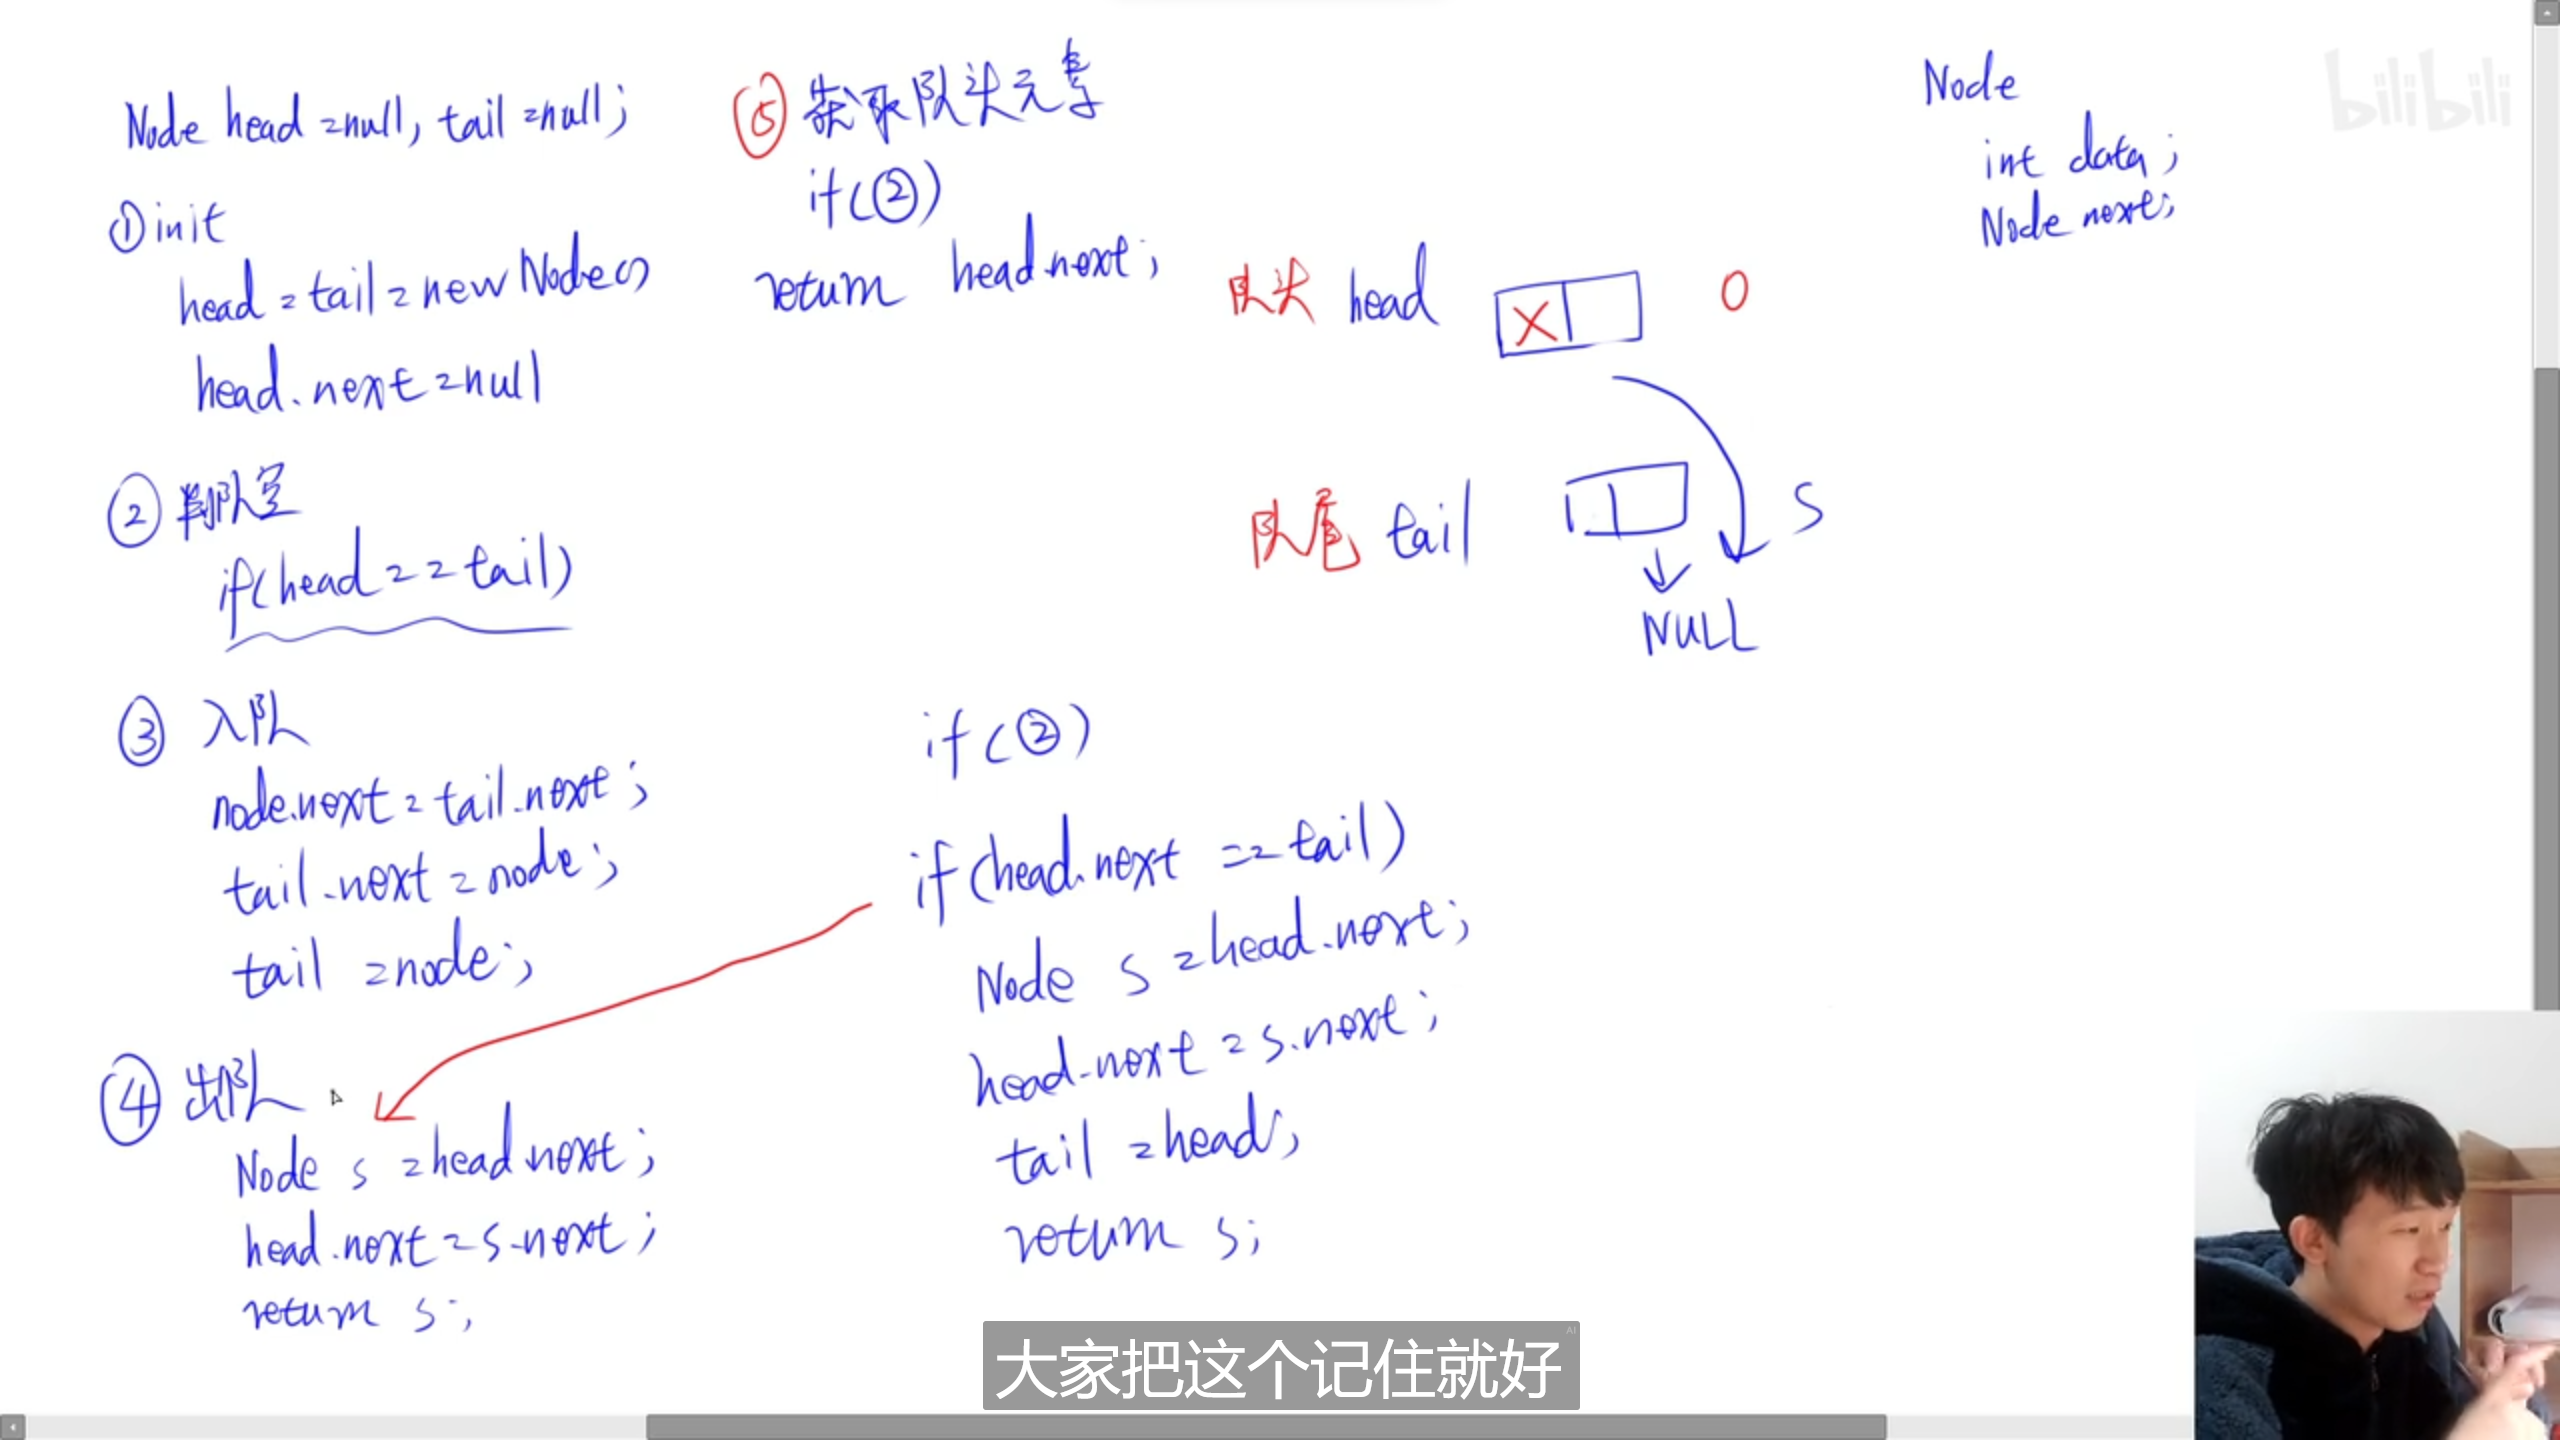 Node head=null, tail=null;
①init
head=tail=new Node()
head.next=null
②判队空
if(head==tail)
③ 入队
node.next=tail.next;
tail.next=node;
tail =node;
④ 出队
Node s =head.next;
head.next=s.next;
return s;
⑤ 获取队头元素
if(②)
return head.next;
if(②)
if(head.next ==tail)
Node s =head.next;
head.next=s.next;
tail =head;
return s;
队头 head
X
0
队尾 tail
S
NULL
Node
int data;
Node next;
bilibili
大家把这个记住就好
AI